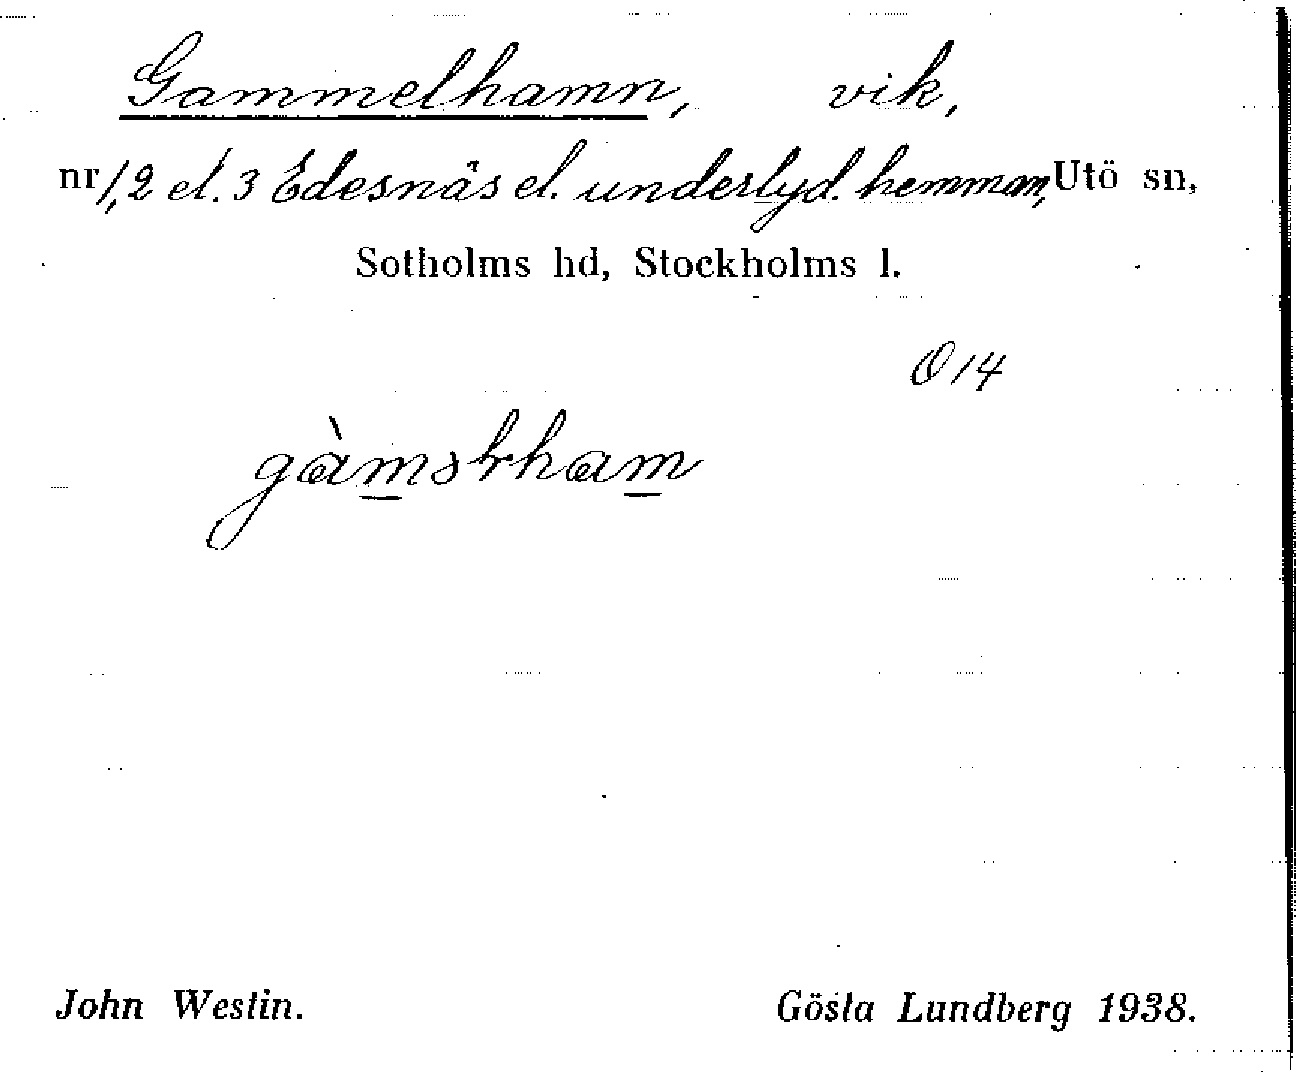 Gammelhamn, vik,
nr 1, 2 el. 3 Edesnäs el. underlyd. hemman, Utö sn,
Sotholms hd, Stockholms l.
Ö 14
John Westin. Gösta Lundberg 1938.